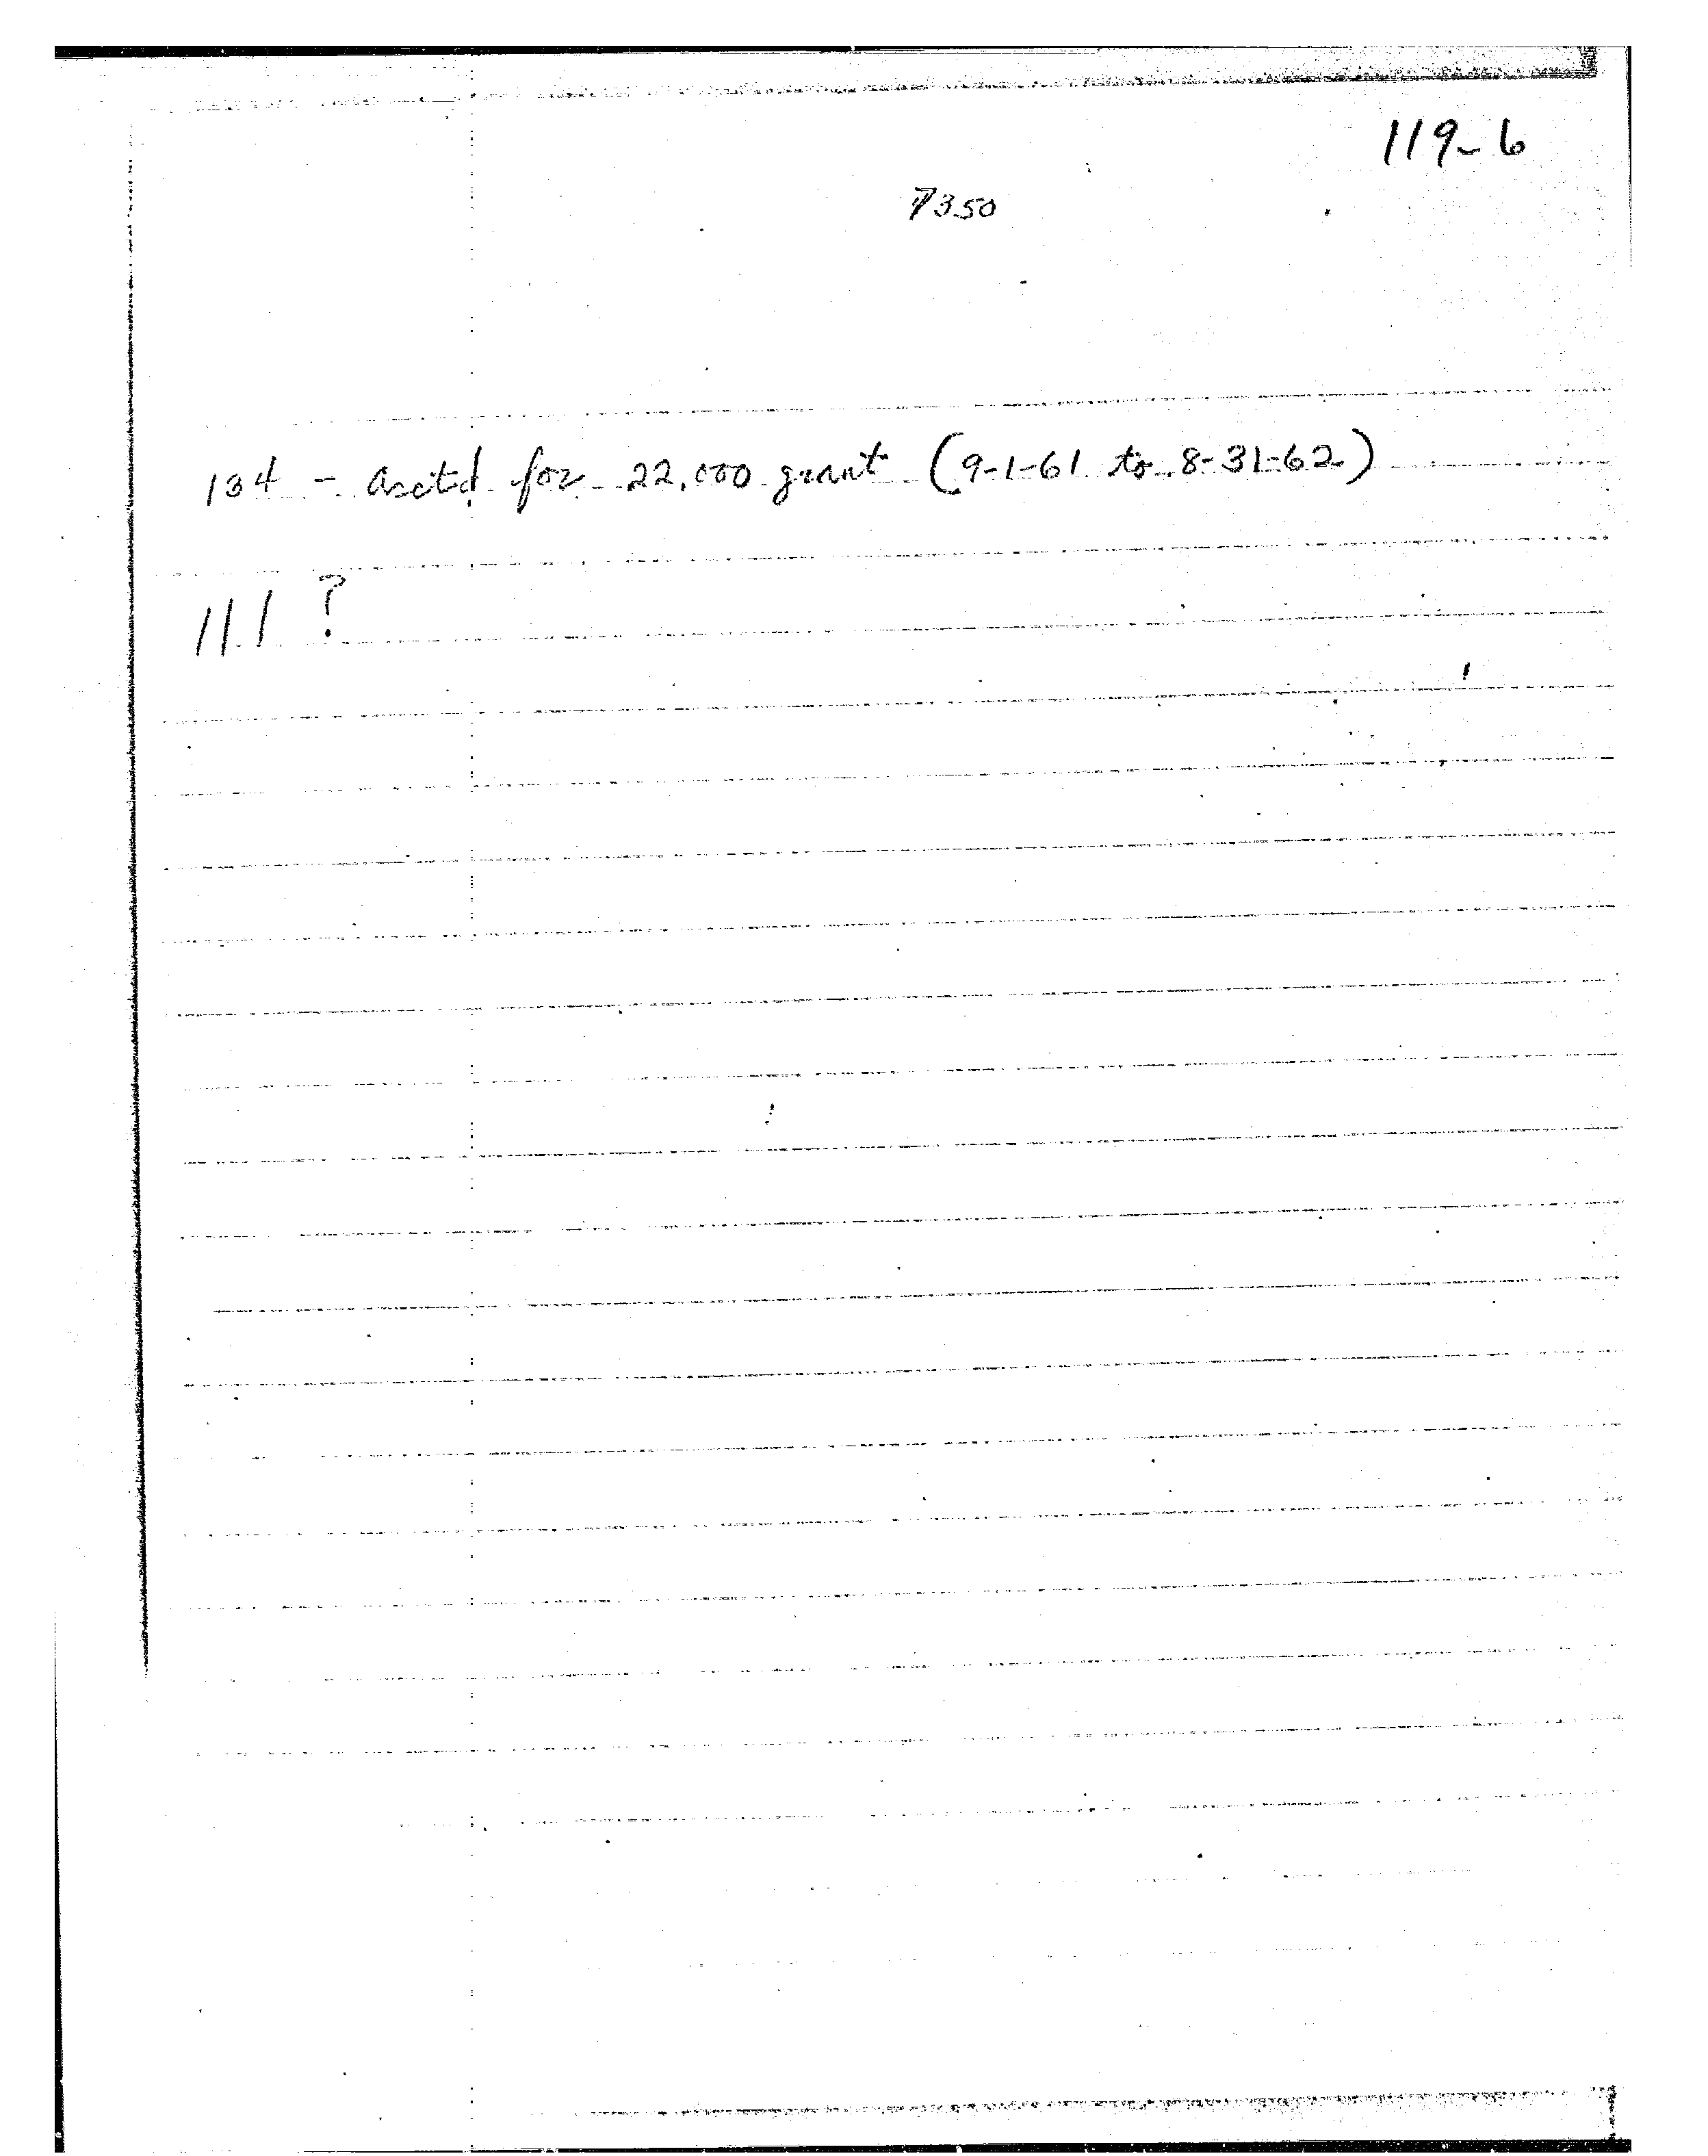 119-6
7350
134 - acctd for 22,000 grant (9-1-61 to 8-31-62)
111 ?